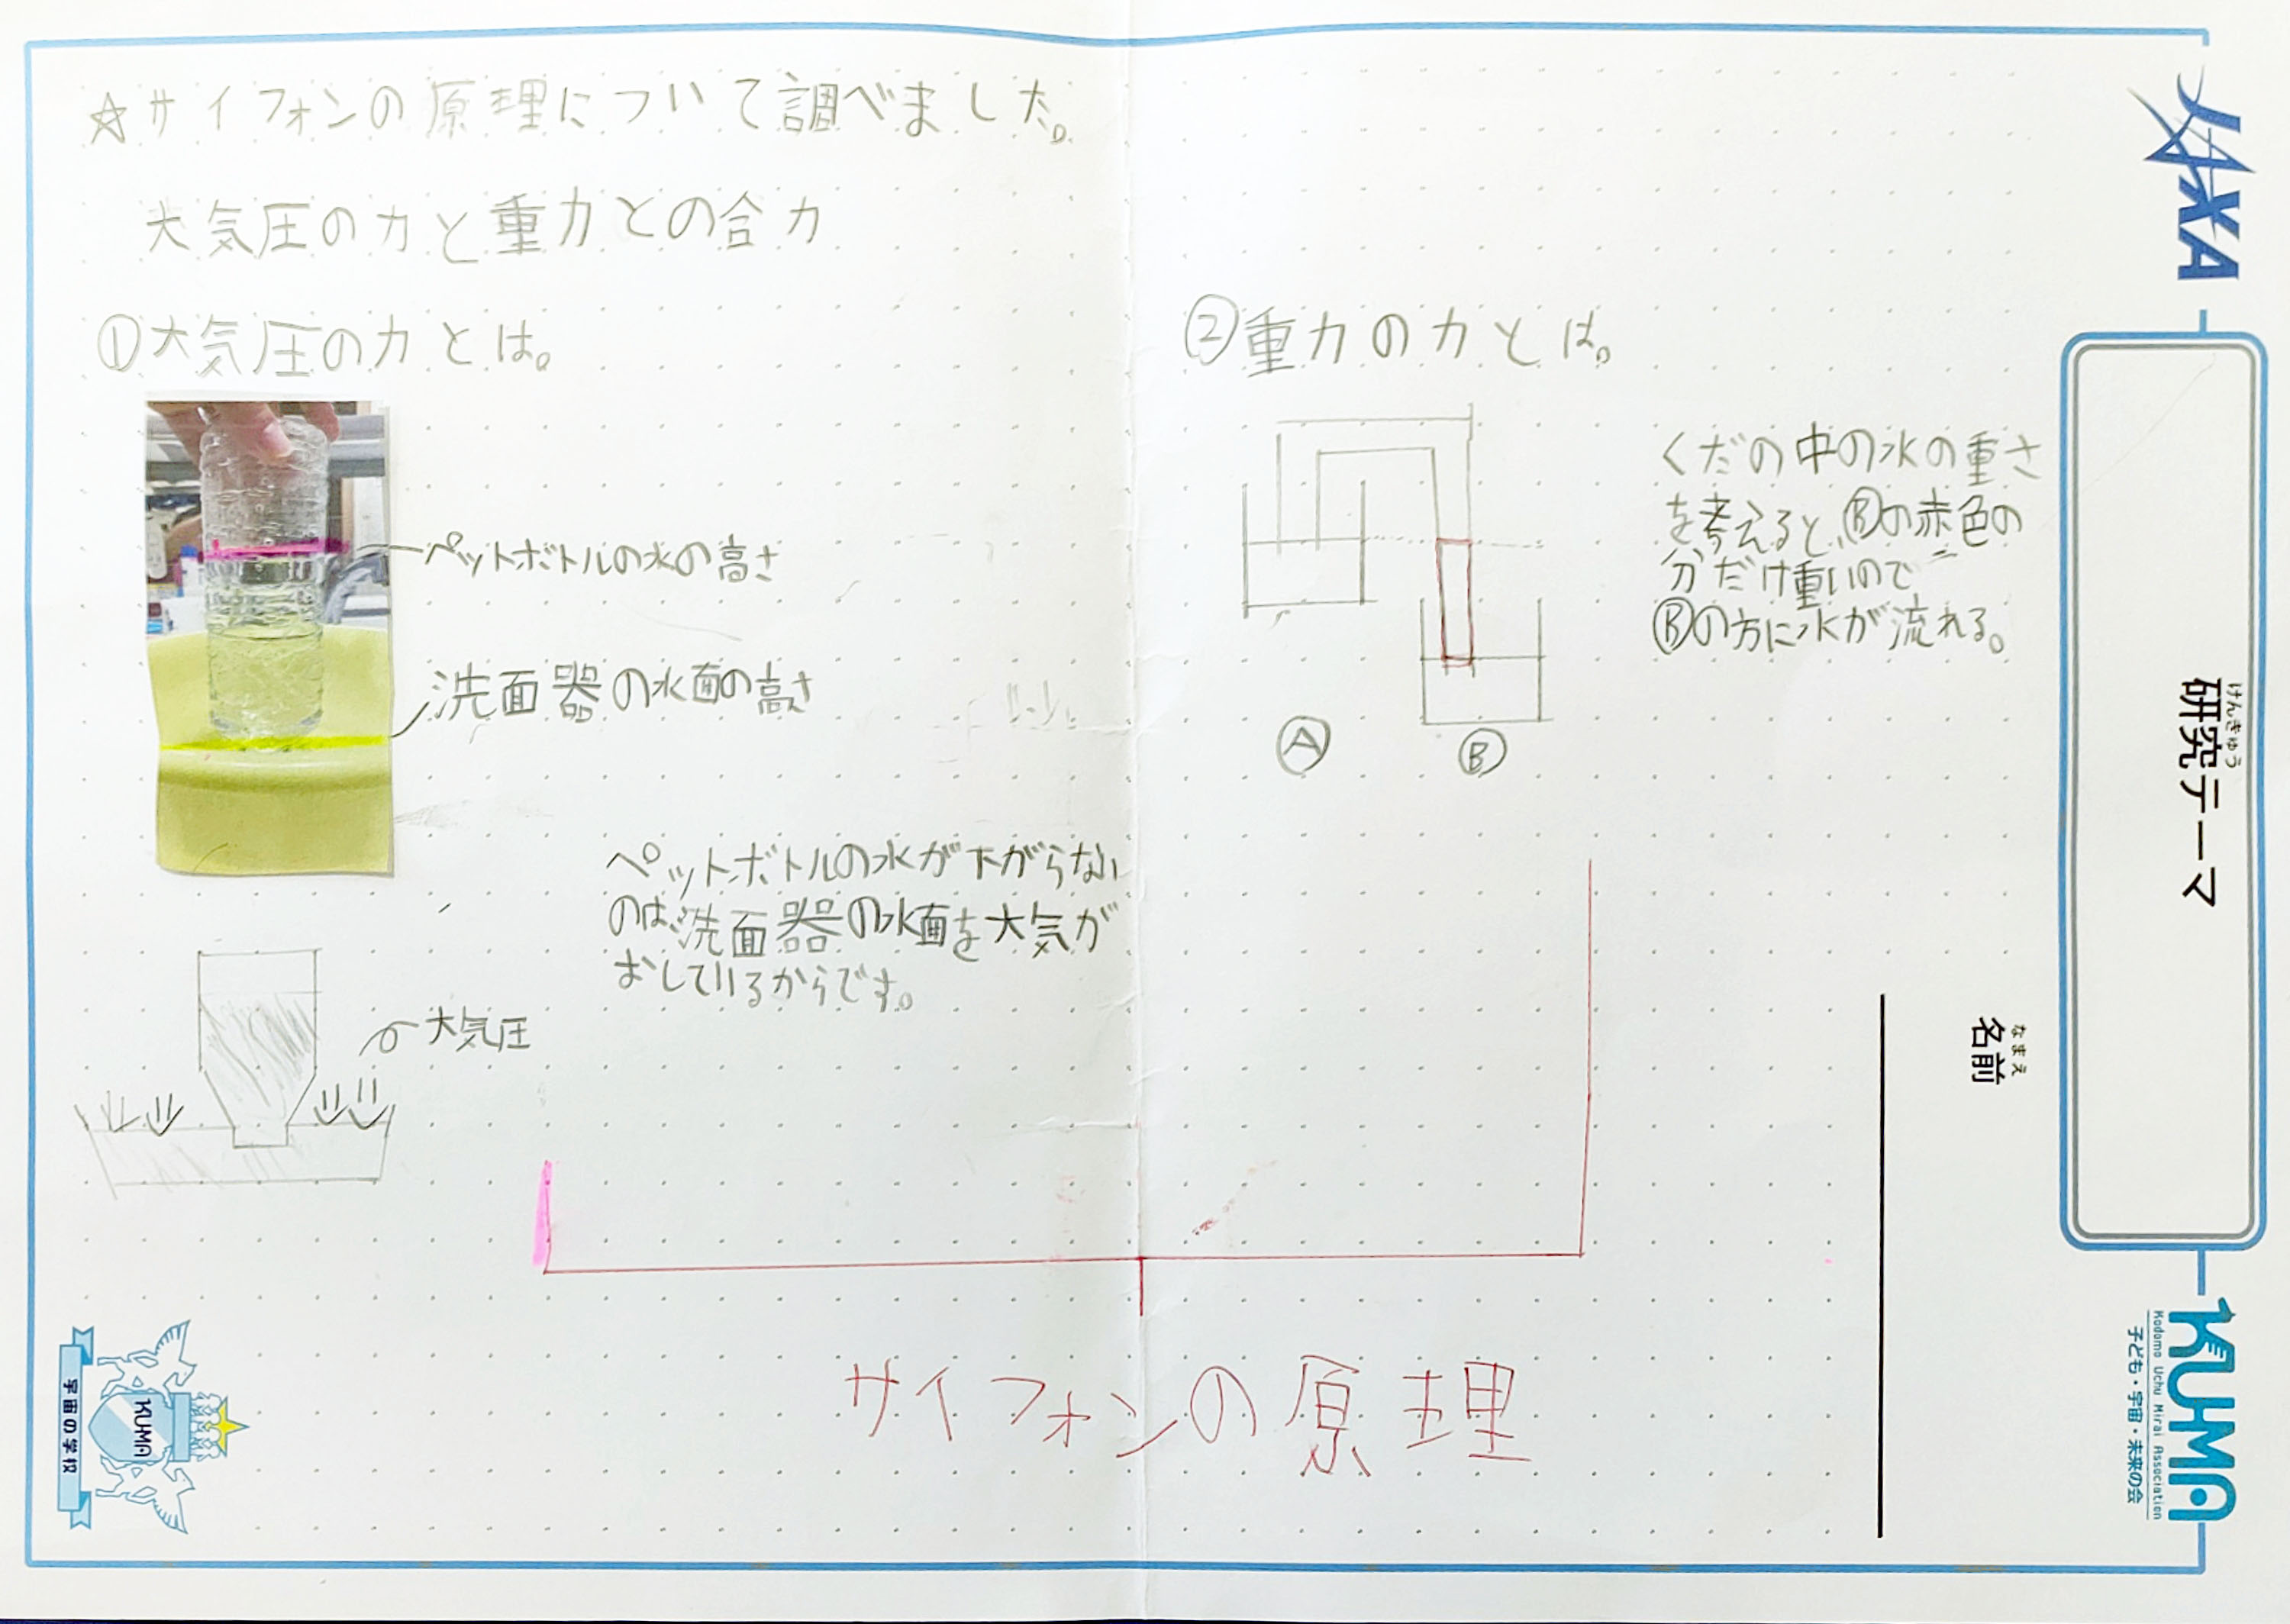 ☆サイフォンの原理について調べました。
大気圧の力と重力との合力
①大気圧の力とは。
ペットボトルの水の高さ
洗面器の水面の高さ
ペットボトルの水が下がらない
のは洗面器の水面を大気が
おしているからです。
大気圧
②重力の力とは。
くだの中の水の重さ
を考えると、Ⓑの赤色の
分だけ重いので
Ⓑの方に水が流れる。
Ⓐ
Ⓑ
サイフォンの原理
JAXA
けんきゅう
研究テーマ
なまえ
名前
KUMA
Kodomo Uchu Mirai Association
子ども・宇宙・未来の会
KUMA
宇宙の学校